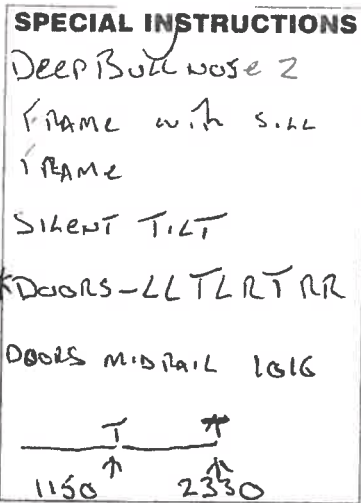 SPECIAL INSTRUCTIONS
DEEP BULLNOSE Z
FRAME with SILL
FRAME
SILENT TILT
*DOORS-LLTLRTRR
DOORS MIDRAIL 1016
T T
1150 2330